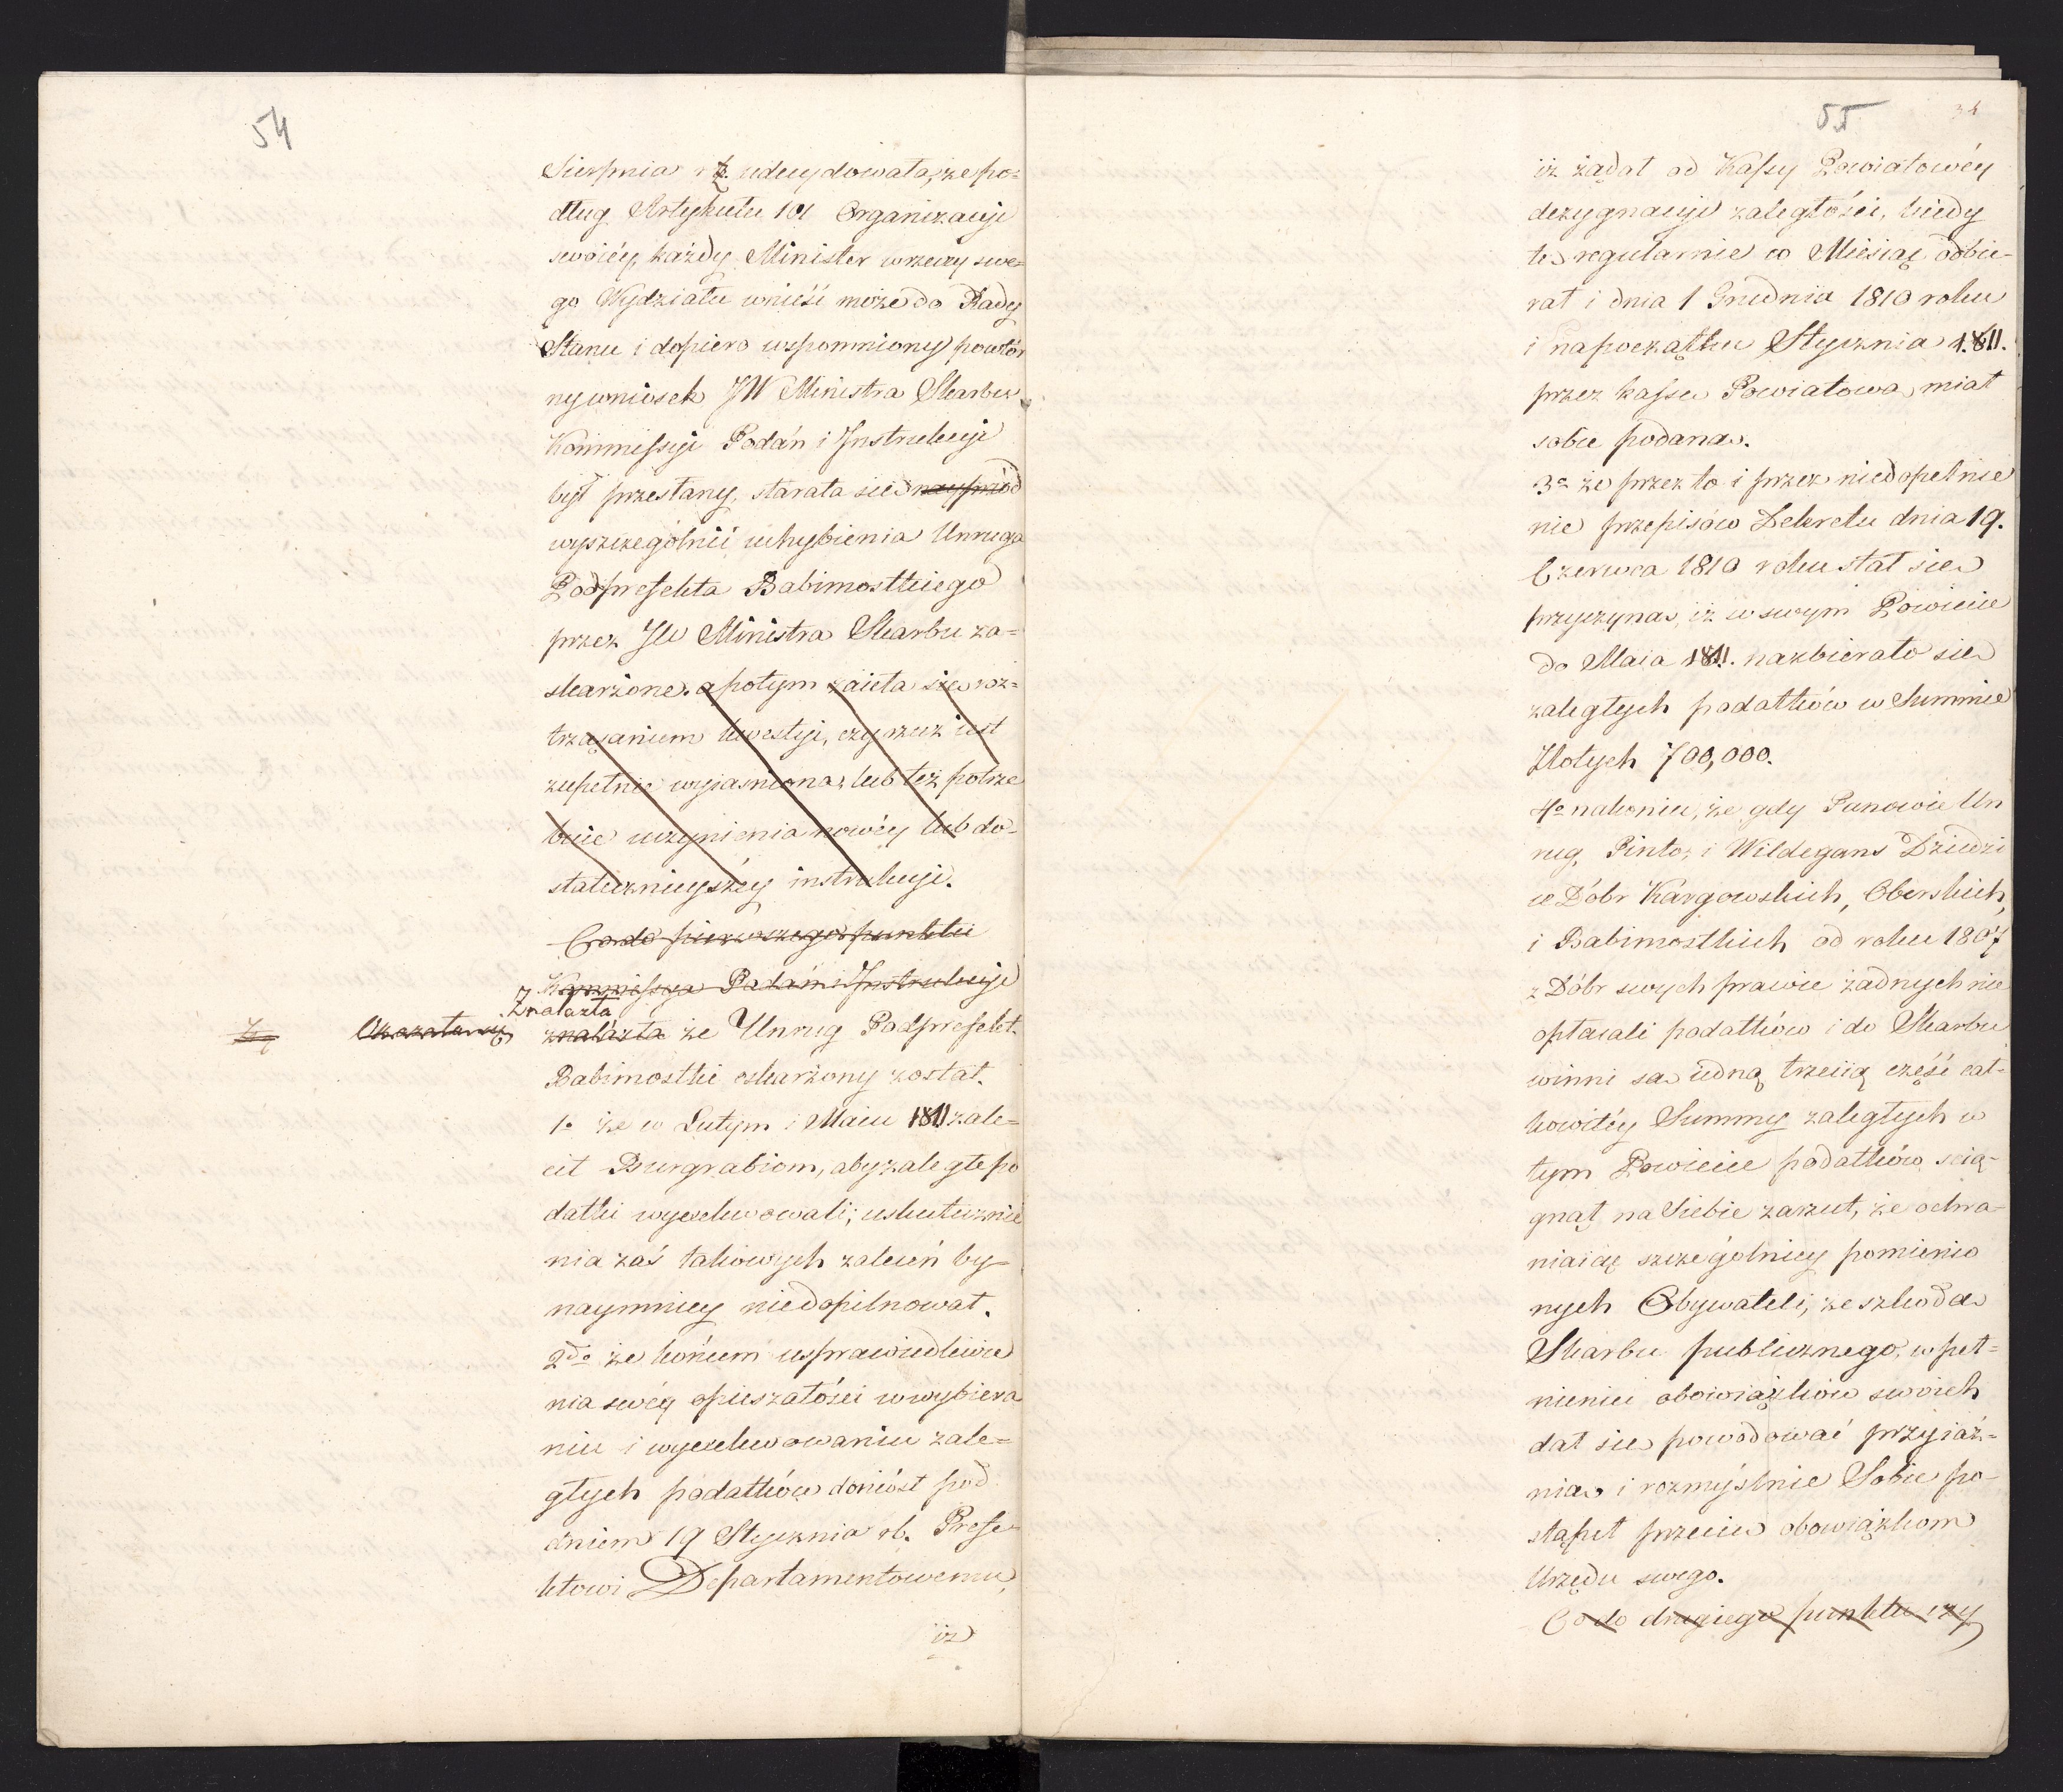 54
Sierpnia r b. udecydowała, że po=
dług Artykułu 101 Organizacyi
swoiéy, każdy Minister wrzeczy swe=
go Wydziału wnieść może do Rady
Stanu i dopiero wspomniony powtór
ny wniosek JW Ministra Skarbu
Kommissyi Podań i Instrukcyi
był przesłany, starała się nayprzód
wyszczególnić uchybienia Unruga
Podprefekta Babimostkiego
przez JW Ministra Skarbu za=
skarżone. a potym zaięła się roz=
trząsaniem kwestyi, czy rzecz iest
zupełnie wyiaśniona, lub też potrze
buie uczynienia nowéy lub do=
statecznieyszéy instrukcyi.
Co do pierwszego punktu
Kommissya Podań i Instrukcyi
Znalazła
Okazało się znalazła że Unrug Podprefekt
Babimostki oskarżony został.
1o że w Lutym i Maiu 1811 zale=
cił Burgrabiom, aby zaległe po
datki wyexekwowali; uskutecznie
nia zaś takowych zaleceń by=
naymniey niedopilnował.
2do że końcem usprawiedliwie
nia swéy opieszałości w wybiera
niu i wyexekwowaniu zale=
głych podatków doniósł pod
dniem 19 Stycznia rb. Prefe=
ktowi Departamentowemu,
iż
55
34
iż żądał od Kassy Powiatowéy
dezygnacyi zaległości, kiedy
tę regularnie co Miesiąc odbie-
rał i dnia 1 Grudnia 1810 roku
i na początku Stycznia 1811.
przez kassę Powiatową miał
sobie podaną.
3o że przez to i przez niedopełnie
nie przepisów Dekretu dnia 19.
Czerwca 1810 roku stał się
przyczyną, iż w swym Powiecie
do Maia 1811. nazbierało się
zaległych podatków w Summie
Złotych 700,000.
4o nakoniec, że gdy Panowie Un
rug, Pinto, i Wildegans Dziedzi
ce Dóbr Kargowskich, Oberskich,
i Babimostkich od roku 1807
z Dóbr swych prawie żadnych nie
opłacali podatków i do Skarbu
winni są iedną trzecią część cał=
kowitéy Summy zaległych w
tym Powiecie podatków, ścią-
gnął na Siebie zarzut, że ochra=
niaiąc szczególniey pomienio
nych Obywateli, ze szkodą
Skarbu publicznego, w peł=
nieniu obowiązków swoich
dał się powodować przyiaź=
nią i rozmyślnie Sobie po-
stąpił przeciw obowiązkom
Urzędu swego.
Co do drugiego punktu czy